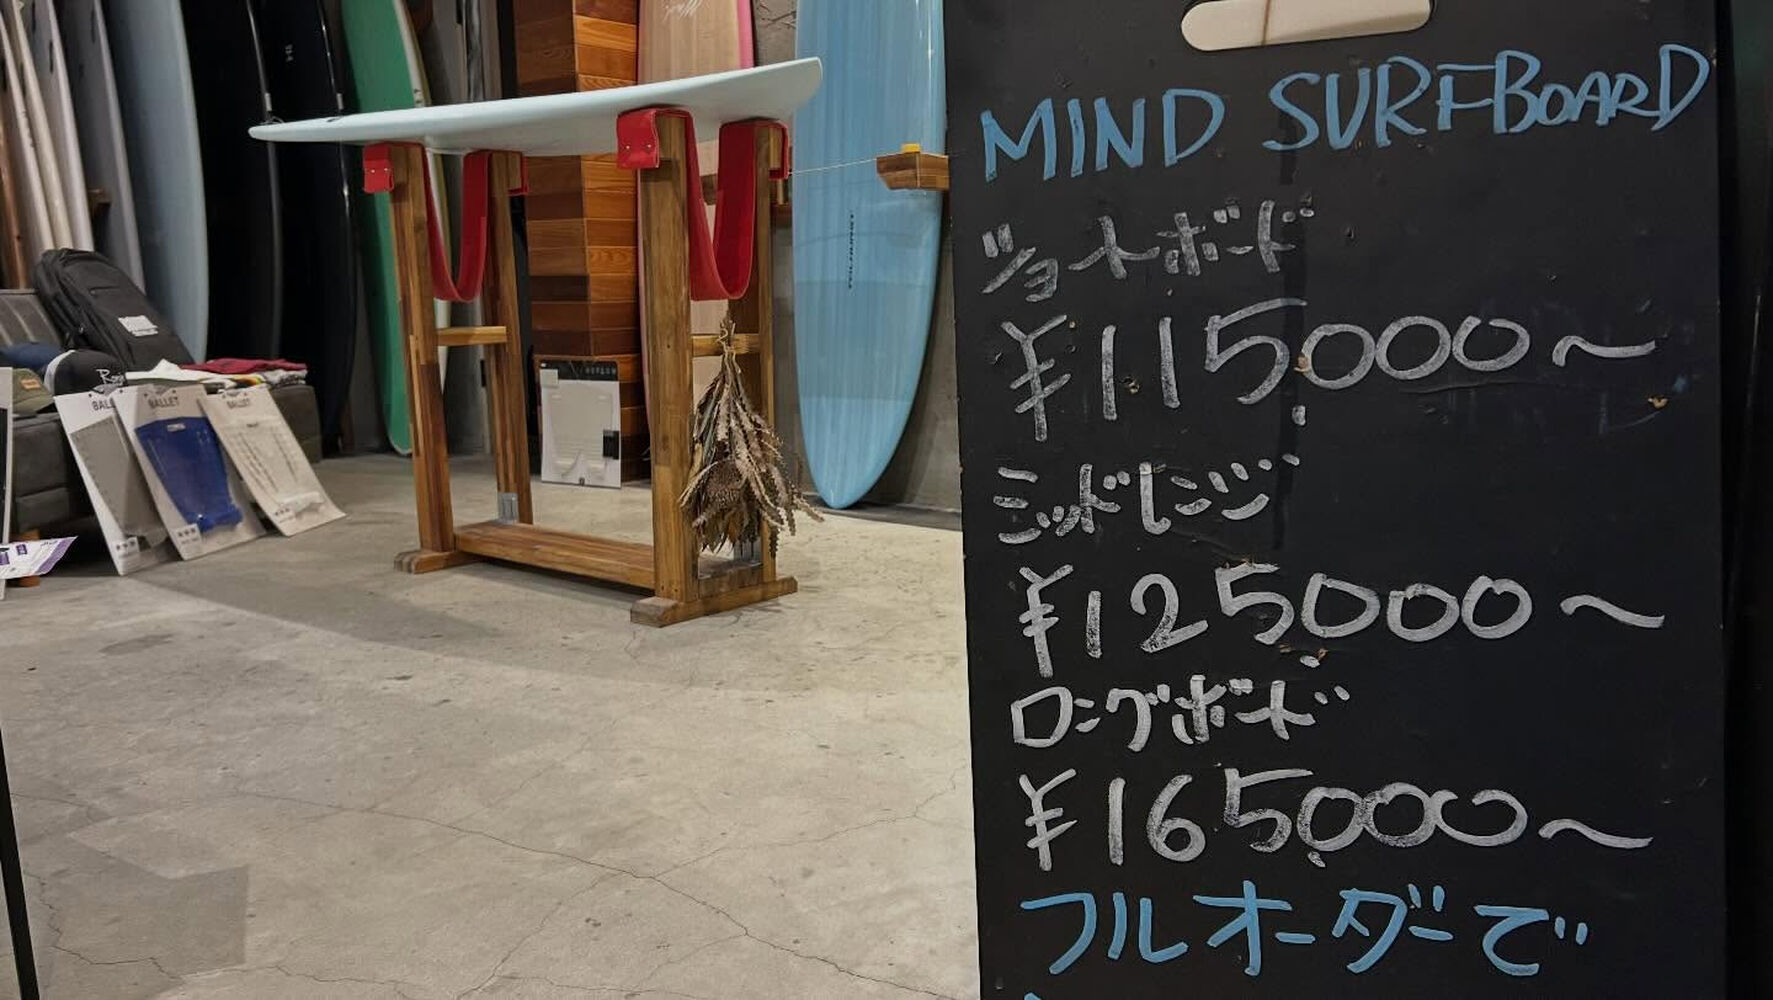 MIND SURFBOARD
ショートボード
¥115,000〜
ミッドレンジ
¥125,000〜
ロングボード
¥165,000〜
フルオーダーで
BALLET
BALLET